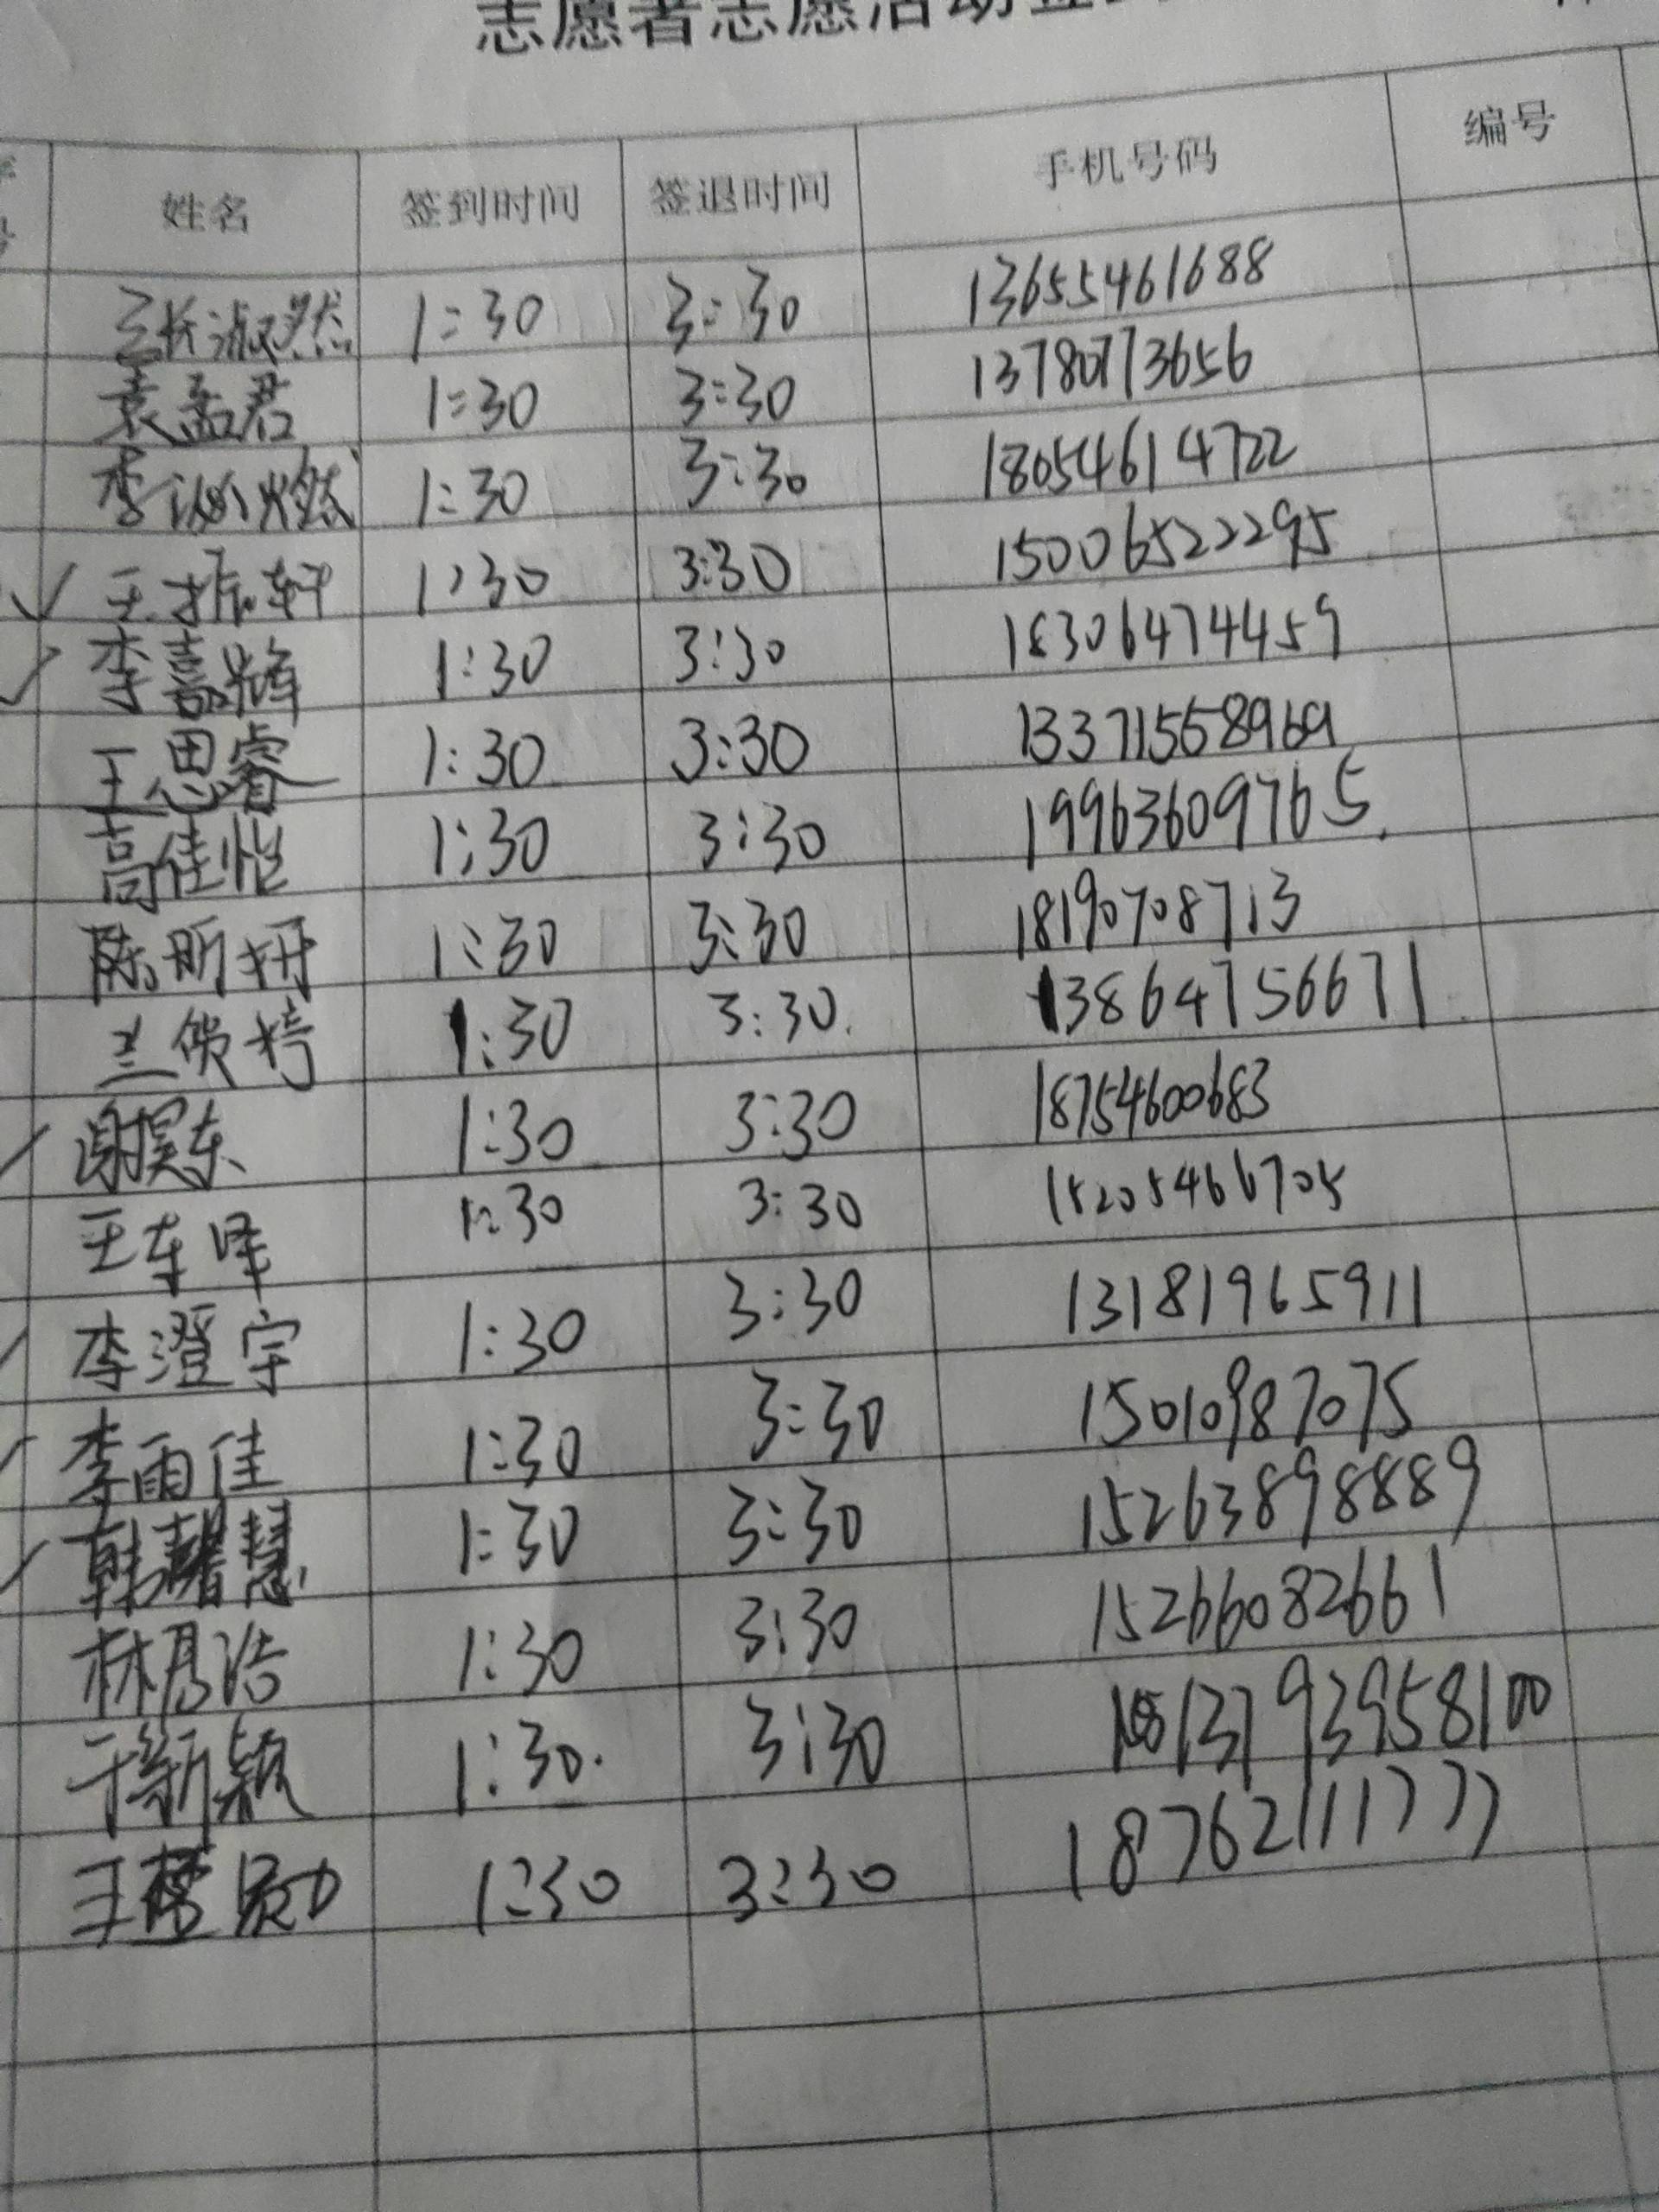 志愿者志愿活动签
姓名 签到时间 签退时间 手机号码 编号
淑然 1:30 3:30 13655461688
袁孟君 1:30 3:30 13780773656
李 燃 1:30 3:30 18054614722
王振轩 1:30 3:30 15006522295
李嘉烽 1:30 3:30 18306474459
王思睿 1:30 3:30 13371558969
高佳怡 1:30 3:30 19963609765
陈昕妍 1:30 3:30 18190708713
兰 1:30 3:30 13864756671
谢昊东 1:30 3:30 18754600683
王车泽 1:30 3:30 15205466705
李澄宇 1:30 3:30 13181965911
李雨佳 1:30 3:30 15010987075
韩馨慧 1:30 3:30 15263898889
林彦浩 1:30 3:30 15266082661
于新颖 1:30 3:30 13793958100
王 1:30 3:30 18762111777